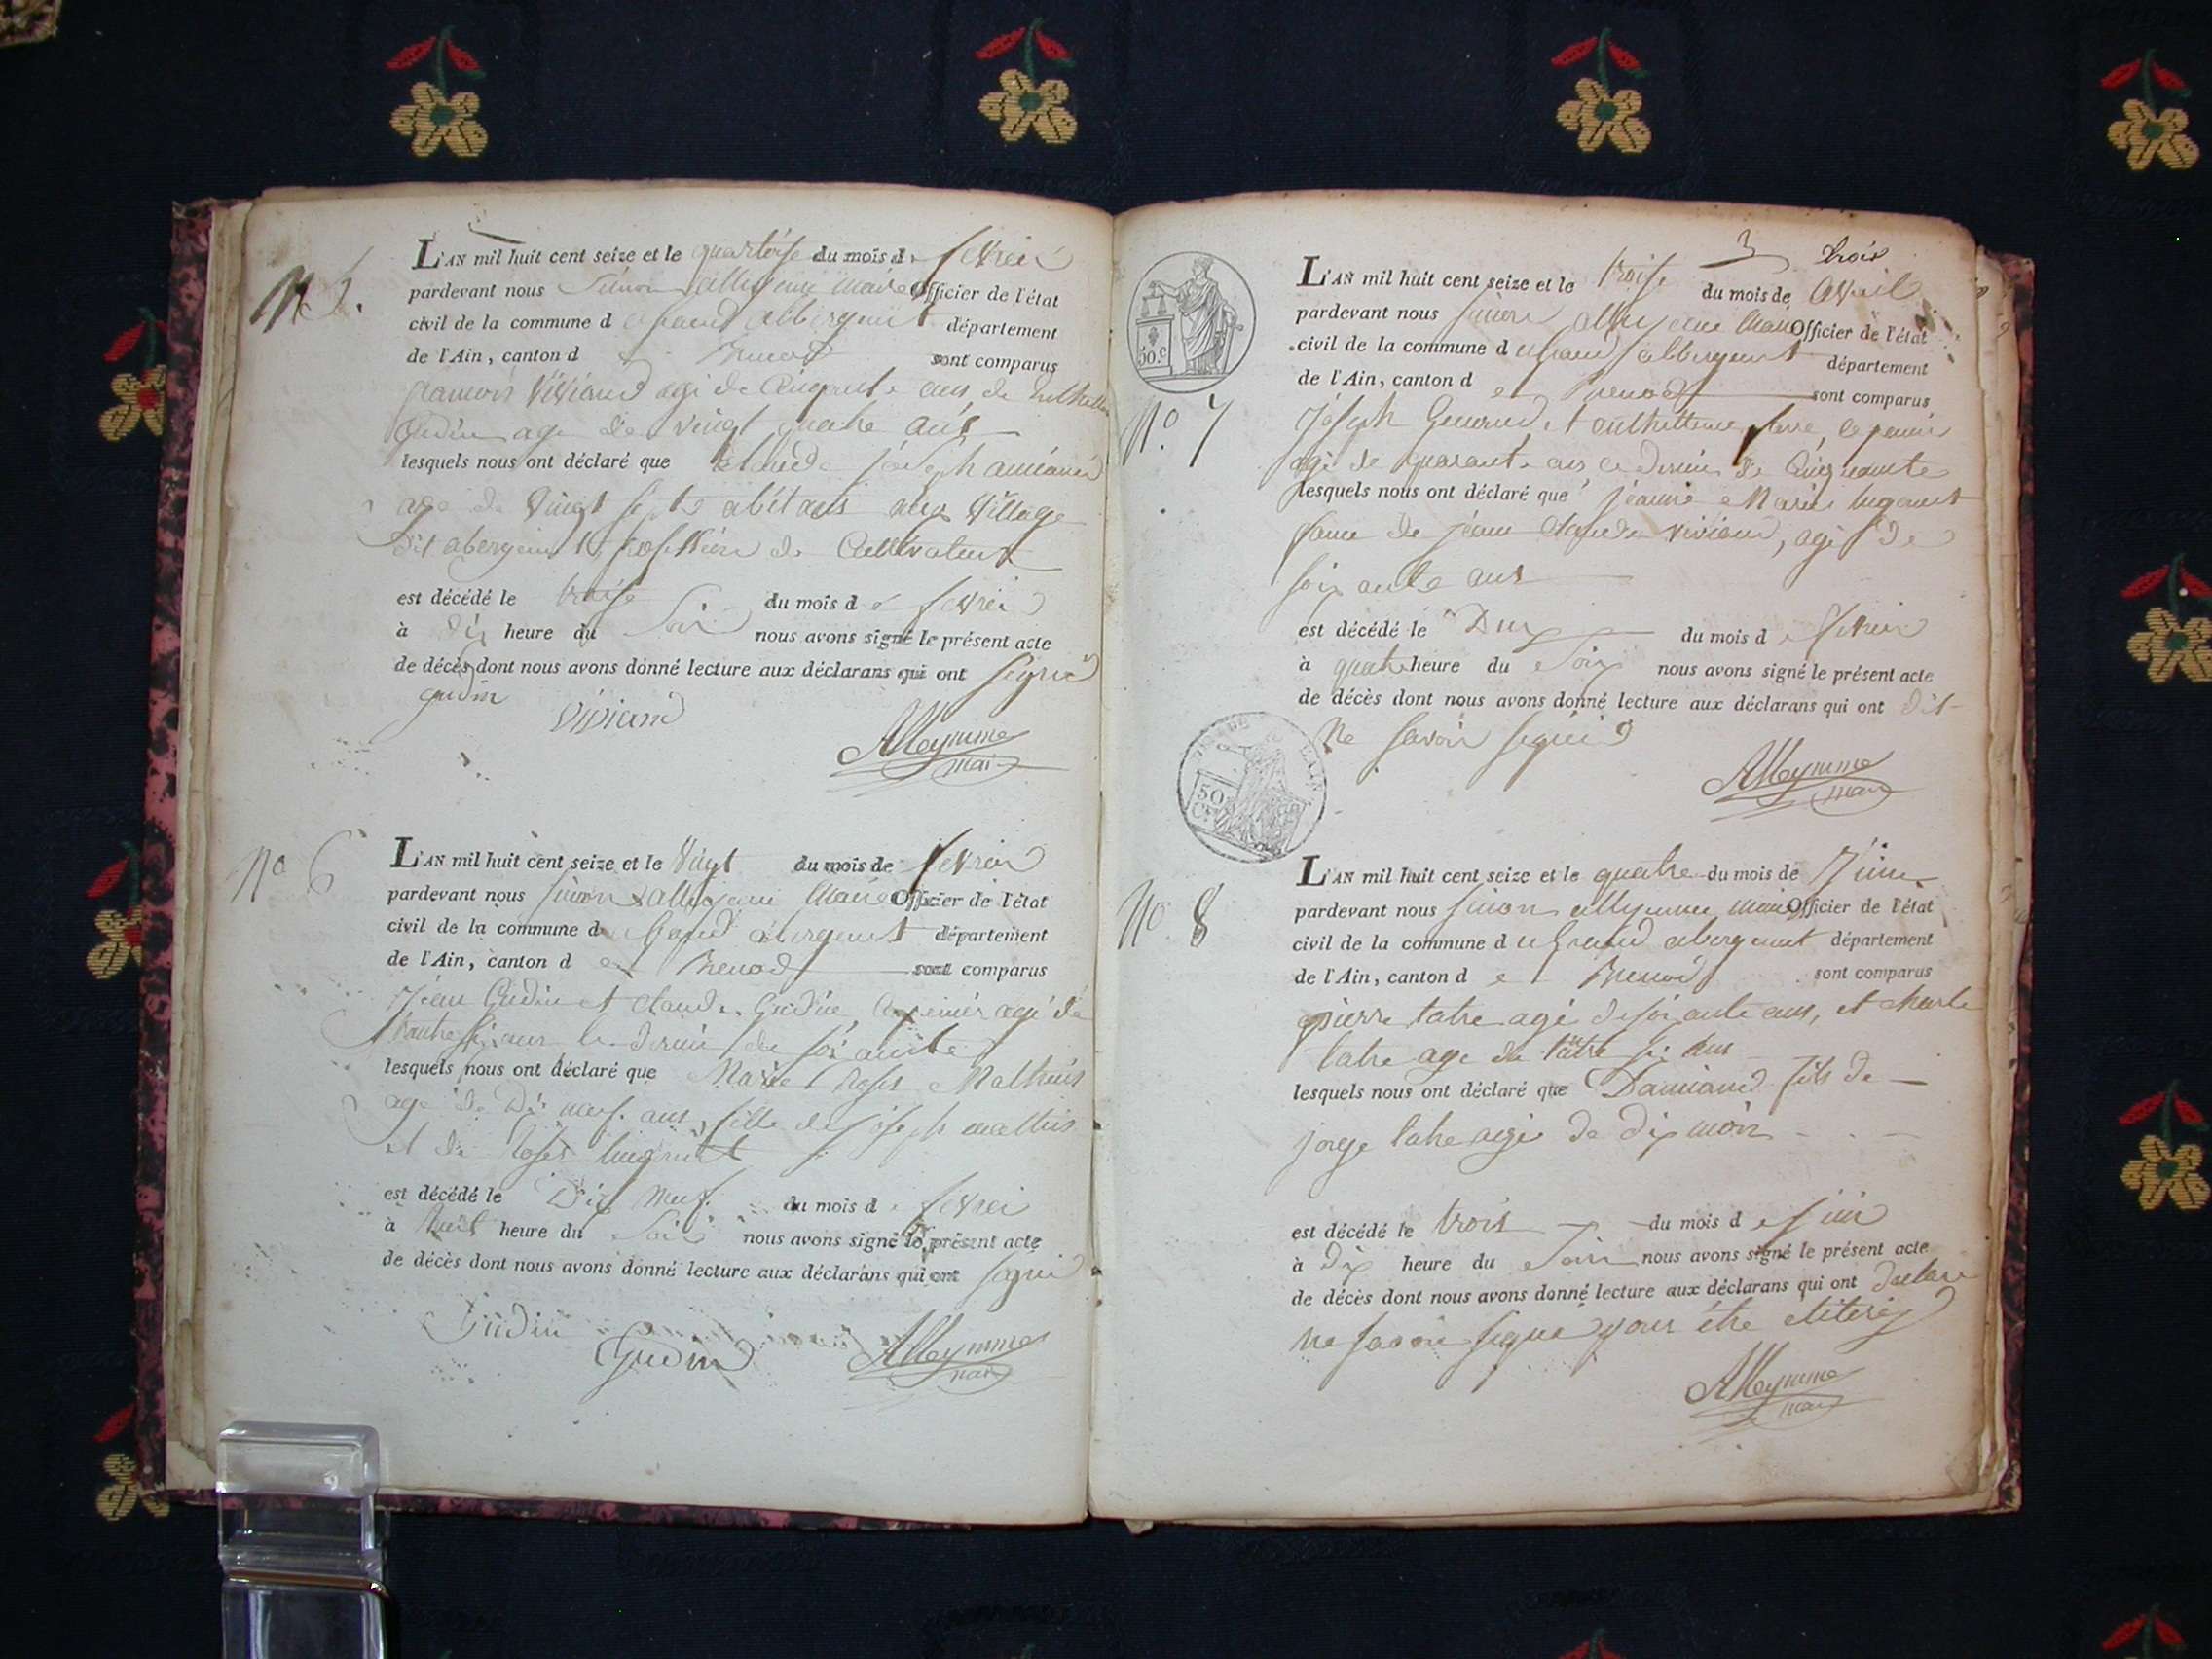 N° 5.
L'AN mil huit cent seize et le quartorse du mois d fevrei
pardevant nous Simon alleyme maire Officier de l'état
civil de la commune d abergemt département
de l'Ain, canton d Brenod sont comparus
francois Viviand agé de cinquante ans, de
Gudin age de vingt quatre ans
lesquels nous ont déclaré que claude joseph
age de vingt sept abitans aux village
dit abergement profession de Cultivateur
est décédé le traise du mois d e fevrei
à dix heure du Soir nous avons signé le présent acte
de décès dont nous avons donné lecture aux déclarans qui ont signé
gudin Viviand
Alleymme
mair
N° 6
L'AN mil huit cent seize et le vingt du mois de fevrei
pardevant nous simon alleyme Maire Officier de l'état
civil de la commune d u Grand abergement département
de l'Ain, canton d e Brenod sont comparus
Jean Gudin et claude Gudin, le premier agé de
trante si ans le dernié de soi ante
lesquels nous ont déclaré que Marie Roses Mathieu
age de Di neuf ans, fille de joseph mathieu
et de Roses
est décédé le Dix neuf du mois d e fevrei
à huit heure du Soir nous avons signé le présent acte
de décès dont nous avons donné lecture aux déclarans qui ont signé
Gudin
Gudin Alleymme
mair
3 trois
50.c
N°. 7
L'AN mil huit cent seize et le traise du mois de Avril
pardevant nous simon alleyme Maire Officier de l'état
civil de la commune d u Grand abbergement département
de l'Ain, canton d e Brenod sont comparus
Joseph et anthelleme, le pemié
agé de quarante ans le dernié de Cinquante
lesquels nous ont déclaré que jeanne Marie
fame de jean Claude viviand, agé de
soix ante ans
est décédé le Dux du mois d e fevrei
à quatre heure du Soir nous avons signé le présent acte
de décès dont nous avons donné lecture aux déclarans qui ont dit
Ne savoir signé
Alleymme
mair
50
N° 8
L'AN mil huit cent seize et le quatre du mois de Juin
pardevant nous simon alleymme maire Officier de l'état
civil de la commune d u Grand abergement département
de l'Ain, canton d e Brenod sont comparus
pierre tatre agé de soi ante ans, et charle
tatre age de trante si ans
lesquels nous ont déclaré que Damiand fils de
jorge tatre agé de dix mois
est décédé le trois du mois d e juin
à Dix heure du Soir nous avons signé le présent acte
de décès dont nous avons donné lecture aux déclarans qui ont declare
ne savoir signé pour être eliteré
Alleymme
mair